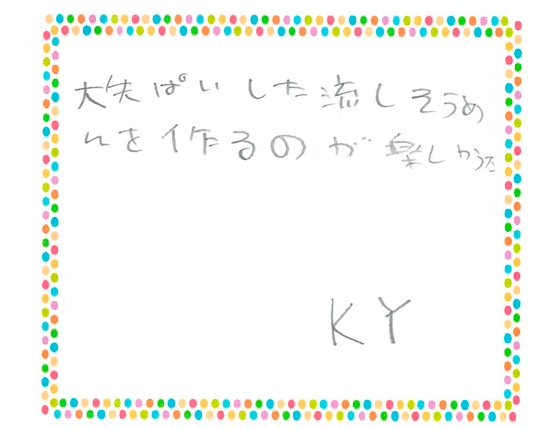 大失ぱいした流しそうめ
んを作るのが楽しかった
KY